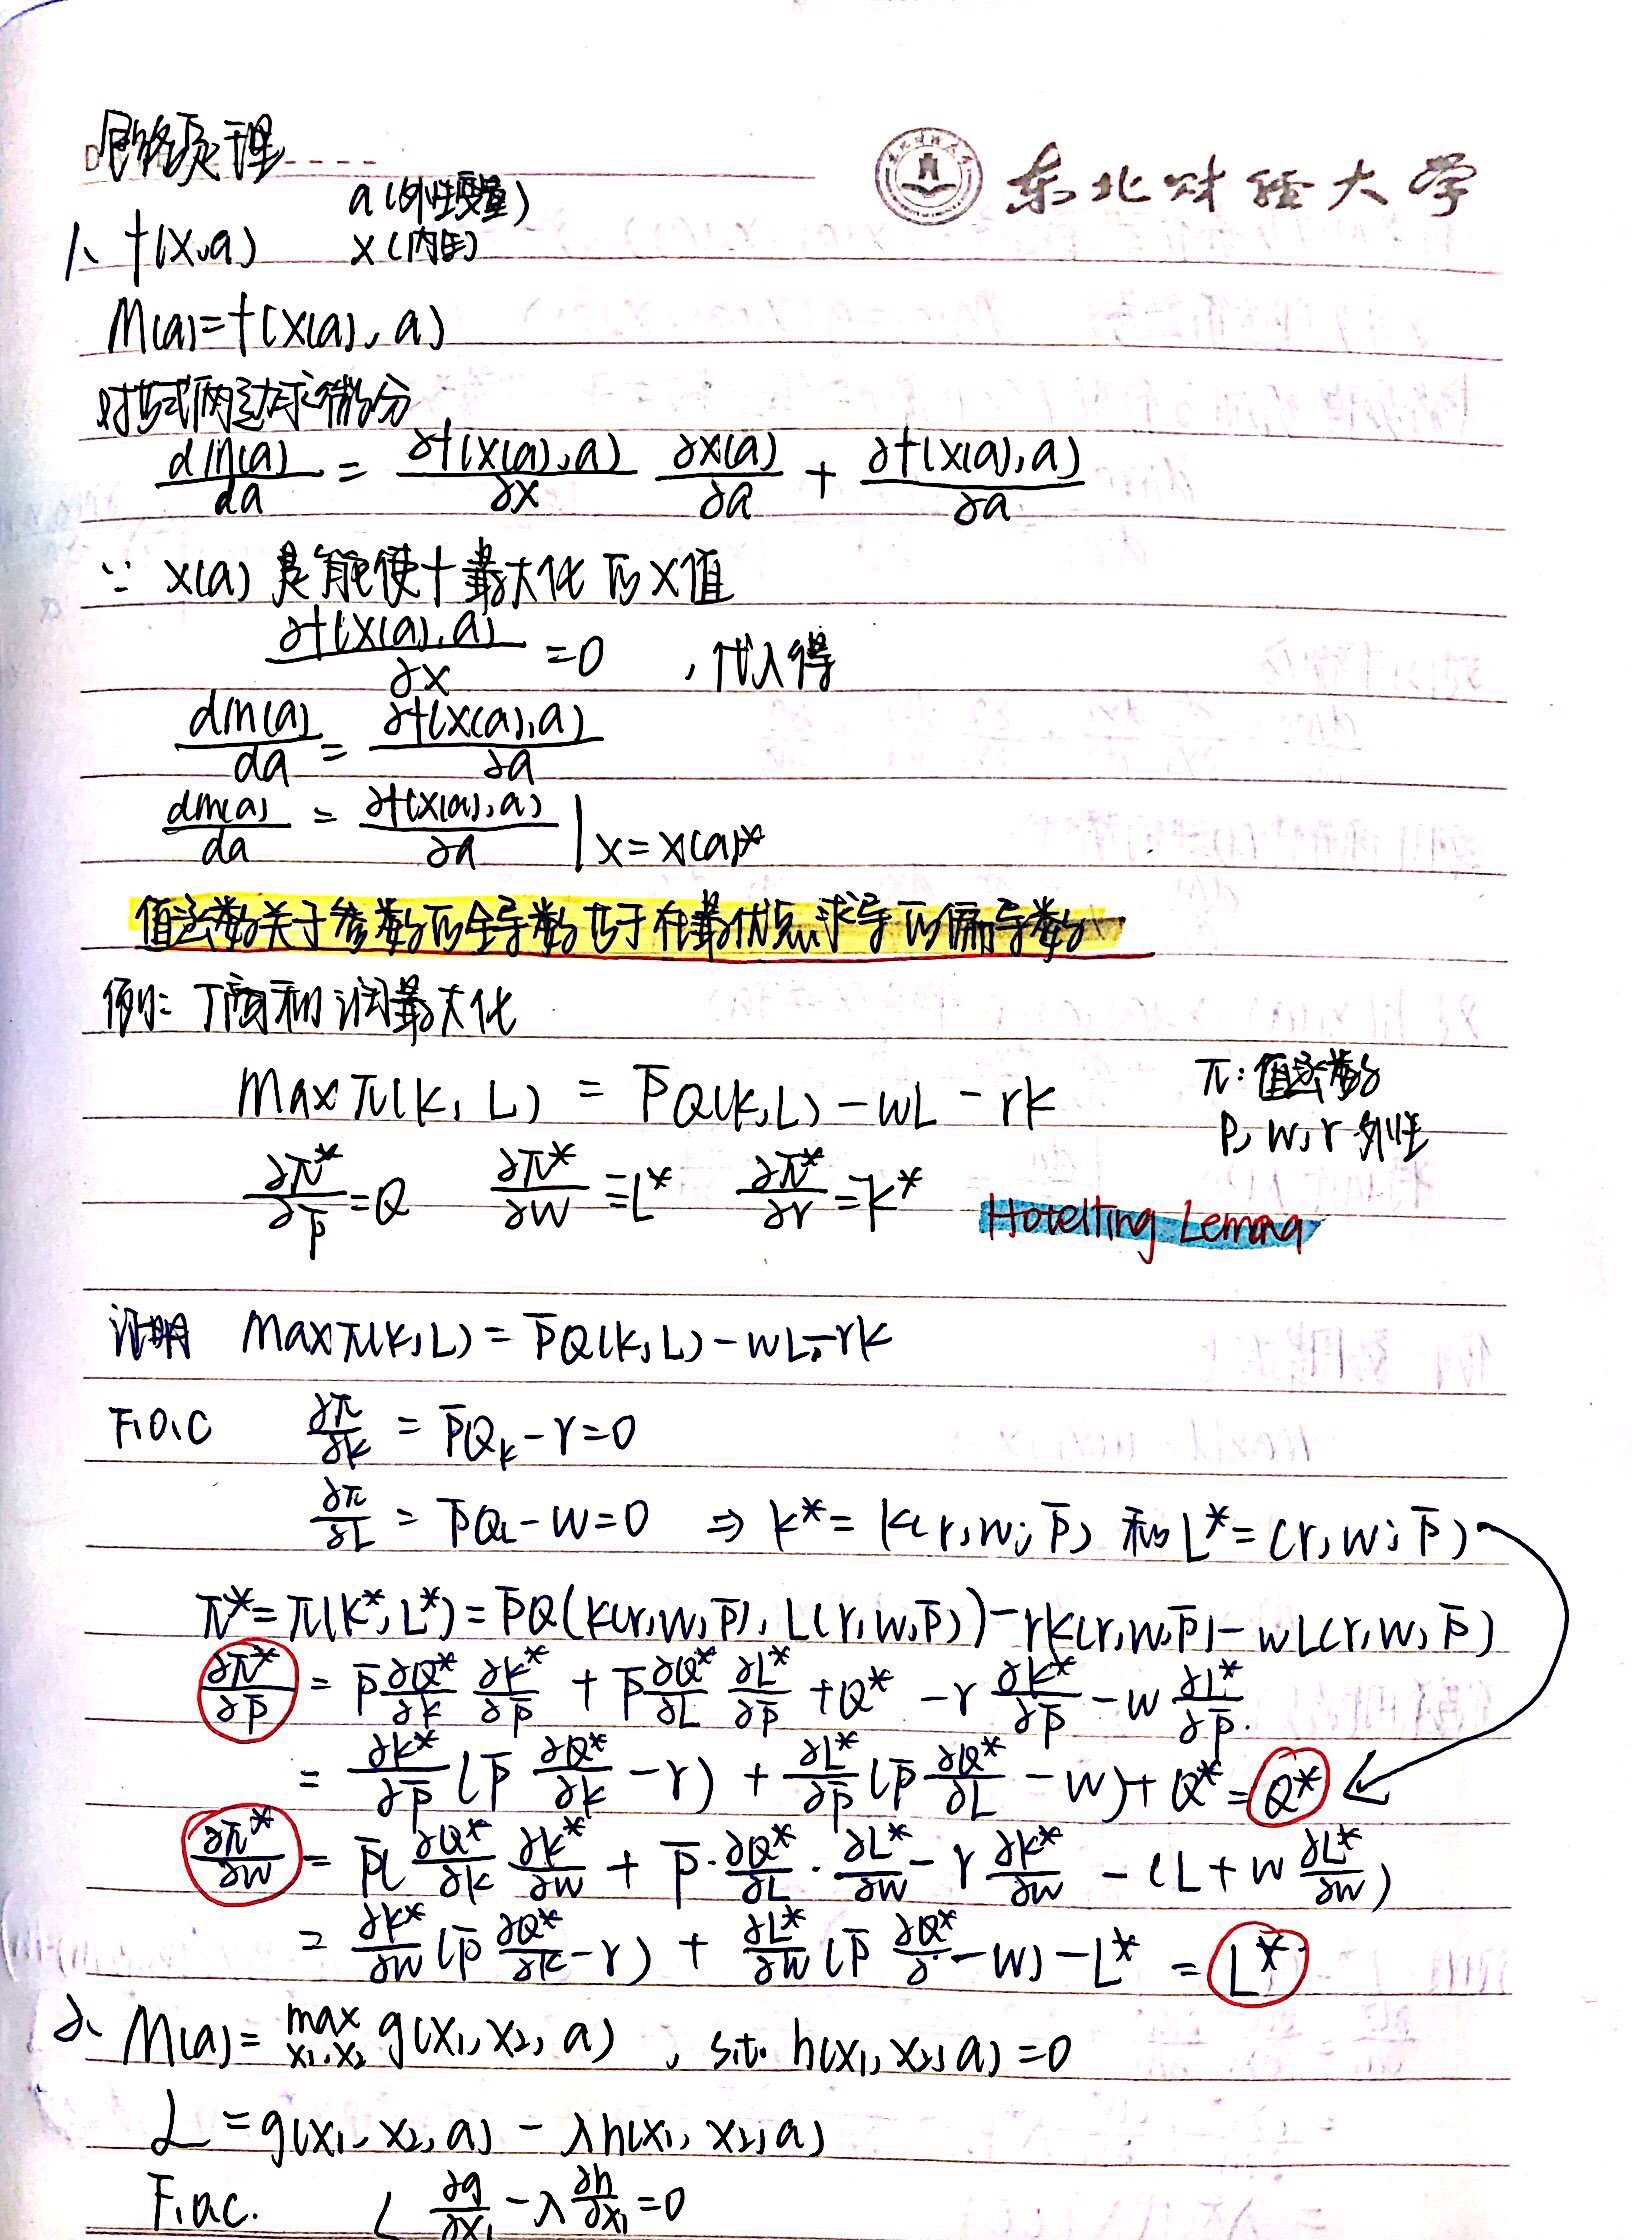 包络定理
东北财经大学
a(外性变量)
1、f(x,a) x(内生)
M(a)=f(x(a),a)
对等式两边求微分
dm(a)/da = ∂f(x(a),a)/∂x ∂x(a)/∂a + ∂f(x(a),a)/∂a
∵ x(a)是能使f最大化的x值
∂f(x(a),a)/∂x =0 ,代入得
dm(a)/da = ∂f(x(a),a)/∂a
dm(a)/da = ∂f(x(a),a)/∂a | x=x(a)*
值函数关于参数的全导数等于在最优点求导的偏导数
例: 厂商利润最大化
Max π(K, L) = P̄Q(K,L)-wL-rK
π:值函数
P,w,r外性
∂π*/∂P̄=Q ∂π*/∂w=-L* ∂π*/∂r=-K*
Hotelting Lemma
证明 Maxπ(K,L)=P̄Q(K,L)-wL-rK
F.O.C ∂π/∂K = P̄Q_K-r=0
∂π/∂L = P̄Q_L-w=0 ⇒ K*=K(r,w;P̄) 和 L*=(r,w;P̄)
π*=π(K*,L*)=P̄Q(K(r,w,P̄), L(r,w,P̄))-rK(r,w,P̄)-wL(r,w,P̄)
∂π*/∂P̄ = P̄ ∂Q*/∂K ∂K*/∂P̄ + P̄ ∂Q*/∂L ∂L*/∂P̄ +Q* -r ∂K*/∂P̄ -w ∂L*/∂P̄.
= ∂K*/∂P̄ (P̄ ∂Q*/∂K -r) + ∂L*/∂P̄ (P̄ ∂Q*/∂L -w)+Q*=Q*
∂π*/∂w = P̄( ∂Q*/∂K ∂K*/∂w + P̄·∂Q*/∂L·∂L*/∂w -r ∂K*/∂w -(L+w ∂L*/∂w)
= ∂K*/∂w (P̄ ∂Q*/∂K -r) + ∂L*/∂w (P̄ ∂Q*/∂ -w)-L* = L*
2、M(a)= max x1,x2 g(x1,x2,a) , s.t. h(x1,x2,a)=0
L =g(x1,x2,a)-λh(x1,x2,a)
F.o.c. { ∂g/∂x1 -λ ∂h/∂x1 =0